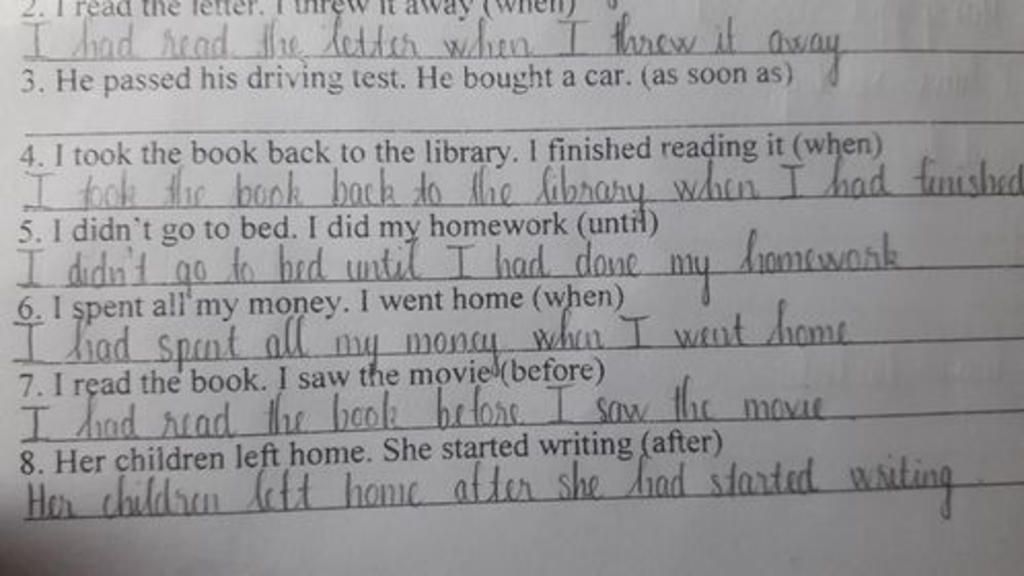 2. I read the letter. I threw it away (when)
I had read the letter when I threw it away
3. He passed his driving test. He bought a car. (as soon as)
4. I took the book back to the library. I finished reading it (when)
I took the book back to the library when I had finished
5. I didn't go to bed. I did my homework (until)
I didn't go to bed until I had done my homework
6. I spent all my money. I went home (when)
I had spent all my money when I went home
7. I read the book. I saw the movie (before)
I had read the book before I saw the movie
8. Her children left home. She started writing (after)
Her children left home after she had started writing